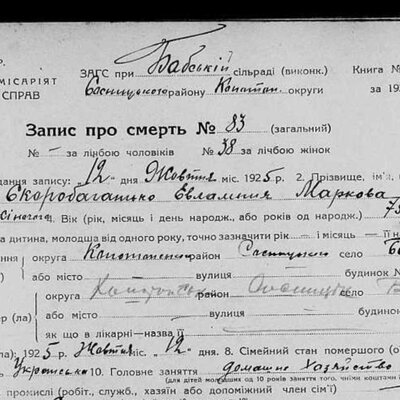 Р.
МІСАРІЯТ ЗАГС при Бабській сільраді (виконк.) Книга №
СПРАВ Сосницького району Конотоп. округи за 192
Запис про смерть № 83 (загальний)
№ — за лічбою чоловіків № 38 за лічбою жінок
дання запису: "12" дня Жовтня міс. 1925 р. 2. Прізвище, ім'я,
Скоробагатько Евлампия Маркова
Жіночого 4. Вік (рік, місяць і день народж., або років од народж.) 75
а дитина, молодша від одного року, точно зазначити рік — і місяць — її н
округа Конотопська район Сосницький село
ання або місто вулиця будинок №
округа район село
або місто вулиця будинок
ер (ла) як що в лікарні—назва її
ла): 1925 р. Жовтня міс. 12 дня. 8. Сімейний стан помершого (о
Українська 10. Головне заняття домашнє хазяйство
(для дітей молодших од 10 років заняття того, чиїми коштами
промислі (робіт., служб., хазяїн або допоміжний член сім'ї)